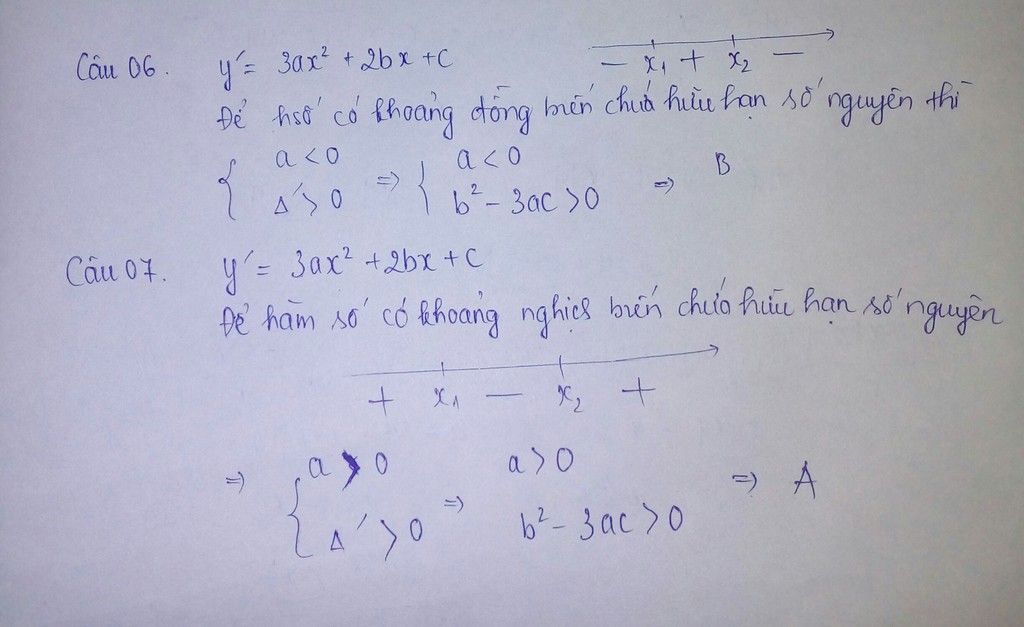 Câu 06. y' = 3ax² + 2bx + c
− x₁ + x₂ −
Để hsố có khoảng đồng biến chứa hữu hạn số nguyên thì
{ a < 0 ⇒ { a < 0 ⇒ B
Δ' > 0 b² − 3ac > 0
Câu 07. y' = 3ax² + 2bx + c
Để hàm số có khoảng nghịch biến chứa hữu hạn số nguyên
+ x₁ − x₂ +
⇒ { a > 0 ⇒ a > 0 ⇒ A
Δ' > 0 b² − 3ac > 0